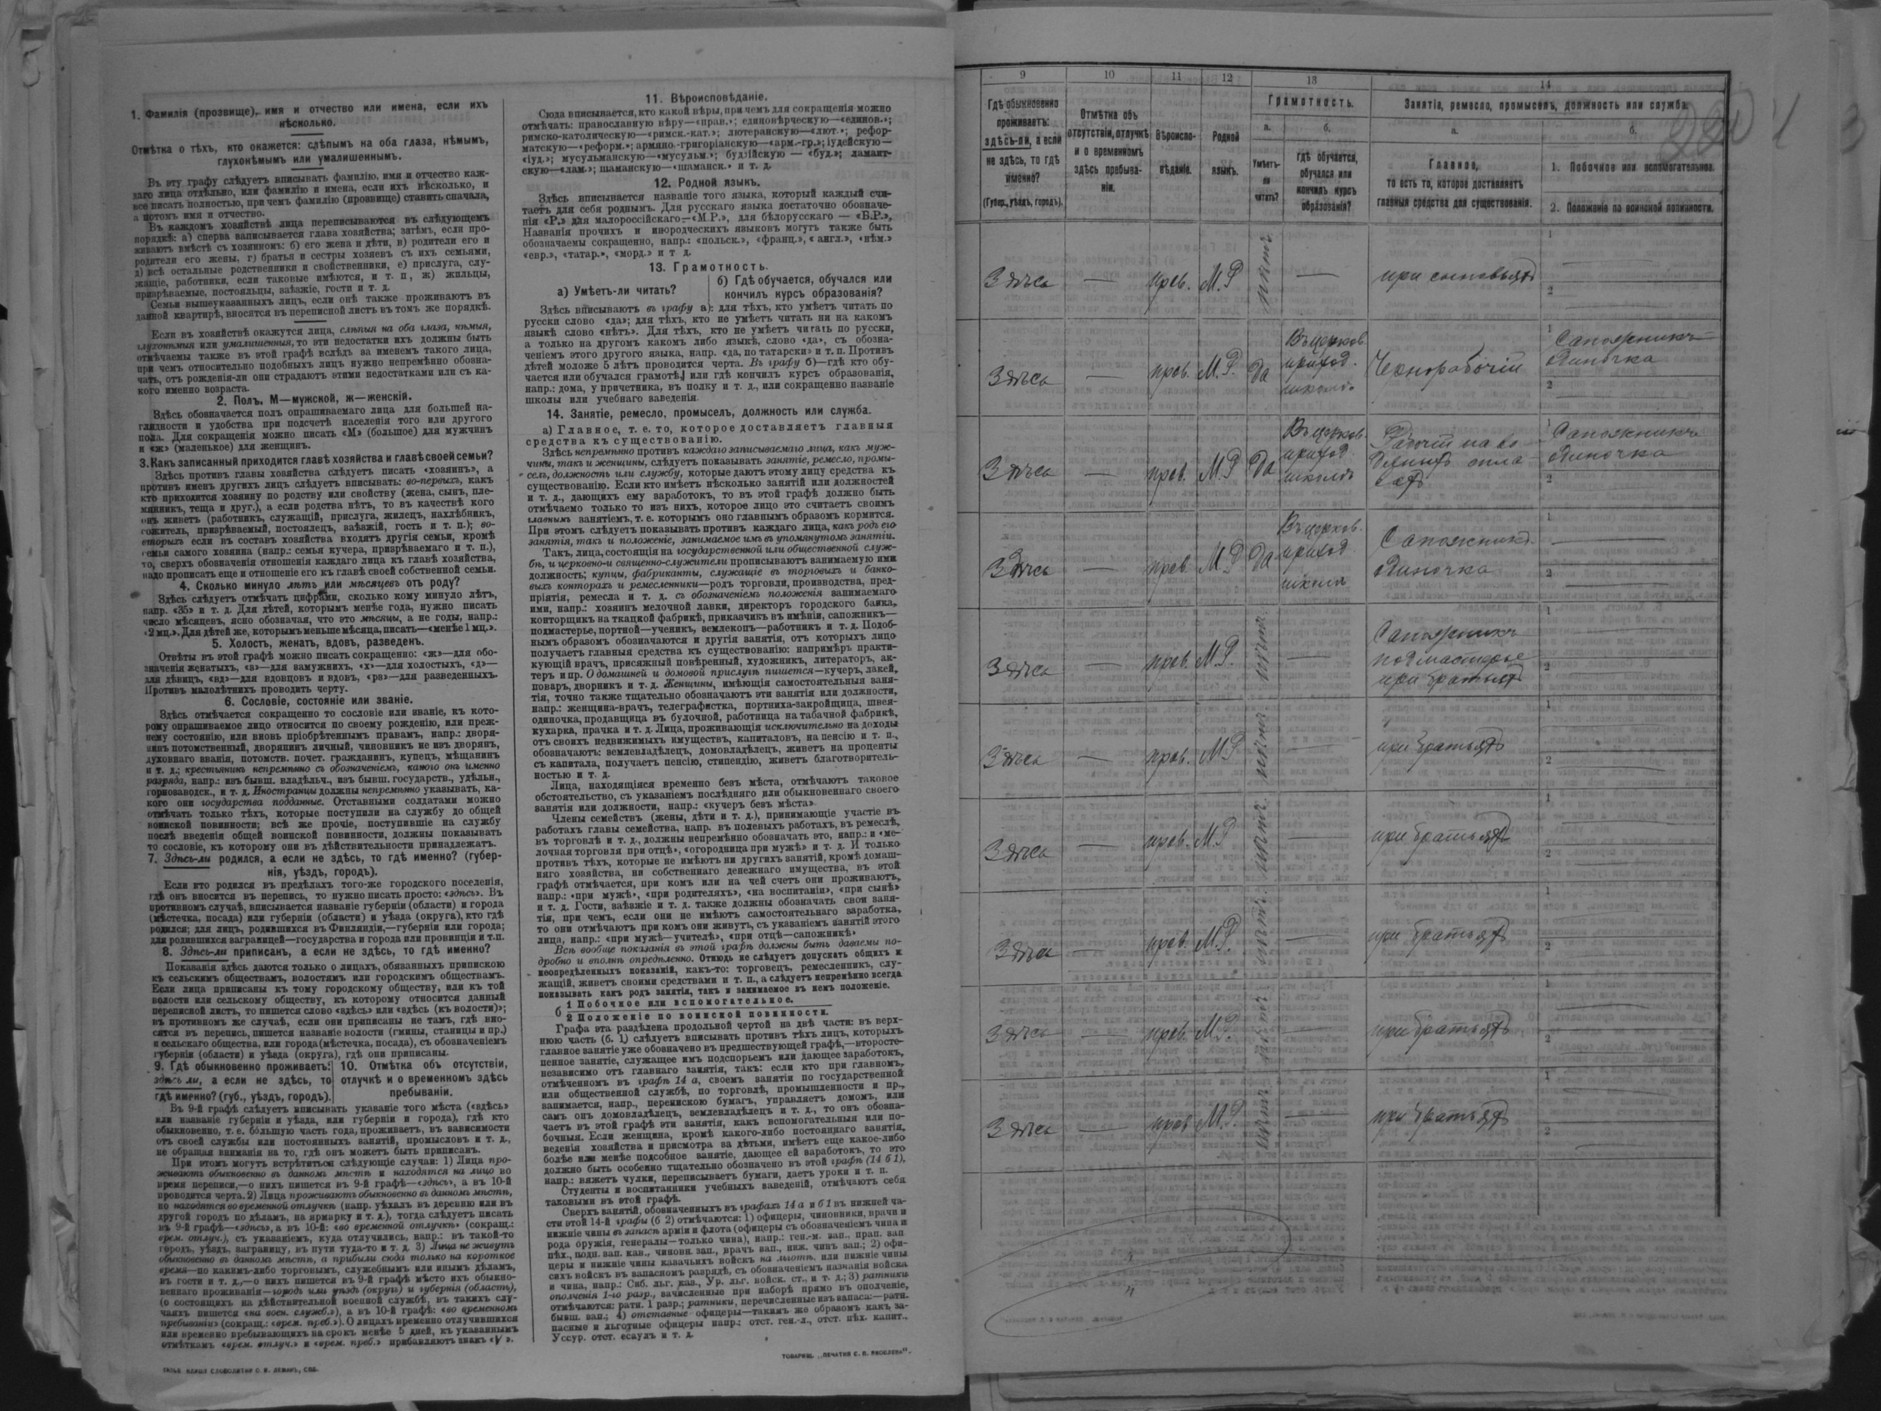 1. Фамилія (прозвище), имя и отчество или имена, если ихъ
нѣсколько.
Отмѣтка о тѣхъ, кто окажется: слѣпымъ на оба глаза, нѣмымъ,
глухонѣмымъ или умалишеннымъ.
Въ эту графу слѣдуетъ вписывать фамилію, имя и отчество каж-
даго лица отдѣльно, или фамилію и имена, если ихъ нѣсколько, и
все писать полностью, при чемъ фамилію (прозвище) ставить сначала,
а потомъ имя и отчество.
Въ каждомъ хозяйствѣ лица переписываются въ слѣдующемъ
порядкѣ: а) сперва записывается глава хозяйства; затѣмъ, если про-
живаютъ вмѣстѣ съ хозяиномъ: б) его жена и дѣти, в) родители его и
родители его жены, г) братья и сестры хозяевъ съ ихъ семьями,
д) всѣ остальные родственники и свойственники, е) прислуга, слу-
жащіе, работники, если таковые имѣются, и т. п., ж) жильцы,
призрѣваемые, постояльцы, заѣзжіе, гости и т. д.
Семьи вышеуказанныхъ лицъ, если онѣ также проживаютъ въ
данной квартирѣ, вносятся въ переписной листъ въ томъ же порядкѣ.
Если въ хозяйствѣ окажутся лица, слѣпыя на оба глаза, нѣмыя,
глухонѣмыя или умалишенныя, то эти недостатки ихъ должны быть
отмѣчаемы также въ этой графѣ вслѣдъ за именемъ такого лица,
при чемъ относительно подобныхъ лицъ нужно непремѣнно обозна-
чать, отъ рожденія-ли они страдаютъ этими недостатками или съ ка-
кого именно возраста.
2. Полъ, М—мужской, ж—женскій.
Здѣсь обозначается полъ опрашиваемаго лица для большей на-
глядности и удобства при подсчетѣ населенія того или другого
пола. Для сокращенія можно писать «М» (большое) для мужчинъ
и «ж» (маленькое) для женщинъ.
3. Какъ записанный приходится главѣ хозяйства и главѣ своей семьи?
Здѣсь противъ главы хозяйства слѣдуетъ писать «хозяинъ», а
противъ именъ другихъ лицъ слѣдуетъ вписывать: во-первыхъ, какъ
кто приходится хозяину по родству или свойству (жена, сынъ, пле-
мянникъ, теща и друг.), а если родства нѣтъ, то въ качествѣ кого
онъ живетъ (работникъ, служащій, прислуга, жилецъ, нахлѣбникъ,
сожитель, призрѣваемый, постоялецъ, заѣзжій, гость и т. п.); во-
вторыхъ если въ составъ хозяйства входятъ другія семьи, кромѣ
семьи самого хозяина (напр.: семья кучера, призрѣваемаго и т. п.),
то, сверхъ обозначенія отношенія каждаго лица къ главѣ хозяйства,
надо прописать еще и отношеніе его къ главѣ своей собственной семьи.
4. Сколько минуло лѣтъ или мѣсяцевъ отъ роду?
Здѣсь слѣдуетъ отмѣчать цифрами, сколько кому минуло лѣтъ,
напр. «35» и т. д. Для дѣтей, которымъ менѣе года, нужно писать
число мѣсяцевъ, ясно обозначая, что это мѣсяцы, а не годы, напр.:
«2 мц.». Для дѣтей же, которымъ меньше мѣсяца, писать—«менѣе 1 мц.».
5. Холостъ, женатъ, вдовъ, разведенъ.
Отвѣты въ этой графѣ можно писать сокращенно: «ж»—для обо-
значенія женатыхъ, «з»—для замужнихъ, «х»—для холостыхъ, «д»—
для дѣвицъ, «вд»—для вдовцовъ и вдовъ, «рв»—для разведенныхъ.
Противъ малолѣтнихъ проводить черту.
6. Сословіе, состояніе или званіе.
Здѣсь отмѣчается сокращенно то сословіе или званіе, къ кото-
рому опрашиваемое лицо относится по своему рожденію, или преж-
нему состоянію, или вновь пріобрѣтеннымъ правамъ, напр.: дворя-
нинъ потомственный, дворянинъ личный, чиновникъ не изъ дворянъ,
духовнаго званія, потомств. почет. гражданинъ, купецъ, мѣщанинъ
и т. д.; крестьянинъ непремѣнно съ обозначеніемъ, какого онъ именно
разряда, напр.: изъ бывш. владѣльч., изъ бывш. государств., удѣльн.,
горнозаводск., и т. д. Иностранцы должны непремѣнно указывать, ка-
кого они государства подданные. Отставными солдатами можно
отмѣчать только тѣхъ, которые поступили на службу до общей
воинской повинности; всѣ же прочіе, поступившіе на службу
послѣ введенія общей воинской повинности, должны показывать
то сословіе, къ которому они въ дѣйствительности принадлежатъ.
7. Здѣсь-ли родился, а если не здѣсь, то гдѣ именно? (губер-
нія, уѣздъ, городъ).
Если кто родился въ предѣлахъ того-же городского поселенія,
гдѣ онъ вносится въ перепись, то нужно писать просто: «здѣсь». Въ
противномъ случаѣ, вписывается названіе губерніи (области) и города
(мѣстечка, посада) или губерніи (области) и уѣзда (округа), кто гдѣ
родился; для лицъ, родившихся въ Финляндіи,—губерніи или города;
для родившихся заграницей—государства и города или провинціи и т.п.
8. Здѣсь-ли приписанъ, а если не здѣсь, то гдѣ именно?
Показанія здѣсь даются только о лицахъ, обязанныхъ припискою
къ сельскимъ обществамъ, волостямъ или городскимъ обществамъ.
Если лица приписаны къ тому городскому обществу, или къ той
волости или сельскому обществу, къ которому относится данный
переписной листъ, то пишется слово «здѣсь» или «здѣсь (къ волости)»;
въ противномъ же случаѣ, если они приписаны не тамъ, гдѣ вно-
сятся въ перепись, пишется названіе волости (гмины, станицы и пр.)
и сельскаго общества, или города (мѣстечка, посада), съ обозначеніемъ
губерніи (области) и уѣзда (округа), гдѣ они приписаны.
9. Гдѣ обыкновенно проживаетъ:
здѣсь ли, а если не здѣсь, то
гдѣ именно? (губ., уѣздъ, городъ).
10. Отмѣтка объ отсутствіи,
отлучкѣ и о временномъ здѣсь
пребываніи.
Въ 9-й графѣ слѣдуетъ вписывать указаніе того мѣста («здѣсь»
или названіе губерніи и уѣзда, или губерніи и города), гдѣ кто
обыкновенно, т. е. большую часть года, проживаетъ, въ зависимости
отъ своей службы или постоянныхъ занятій, промысловъ и т. д.,
не обращая вниманія на то, гдѣ онъ можетъ быть приписанъ.
При этомъ могутъ встрѣтиться слѣдующіе случаи: 1) Лица про-
живаютъ обыкновенно въ данномъ мѣстѣ и находятся на лицо во
время переписи,—о нихъ пишется въ 9-й графѣ—«здѣсь», а въ 10-й
проводится черта. 2) Лица проживаютъ обыкновенно въ данномъ мѣстѣ,
но находятся во временной отлучкѣ (напр. уѣхалъ въ деревню или въ
другой городъ по дѣламъ, на ярмарку и т. д.), тогда слѣдуетъ писать
въ 9-й графѣ—«здѣсь», а въ 10-й: «во временной отлучкѣ» (сокращ.:
врем. отлуч.), съ указаніемъ, куда отлучились, напр.: въ такой-то
городъ, уѣздъ, заграницу, въ пути туда-то и т. д. 3) Лица не живутъ
обыкновенно въ данномъ мѣстѣ, а прибыли сюда только на короткое
время—по какимъ-либо торговымъ, служебнымъ или инымъ дѣламъ,
въ гости и т. д.,—о нихъ пишется въ 9-й графѣ мѣсто ихъ обыкно-
веннаго проживанія—городъ или уѣздъ (округъ) и губернія (область),
(о состоящихъ на дѣйствительной военной службѣ, въ такихъ слу-
чаяхъ пишется «на воен. служб.»), а въ 10-й графѣ: «во временномъ
пребываніи» (сокращ.: «врем. преб.»). О лицахъ временно отлучившихся
или временно пребывающихъ на срокъ менѣе 5 дней, къ указаннымъ
отмѣткамъ «врем. отлуч.» и «врем. преб.» прибавляютъ знакъ «V».
11. Вѣроисповѣданіе.
Сюда вписывается, кто какой вѣры, при чемъ для сокращенія можно
отмѣчать: православную вѣру—«прав.»; единовѣрческую—«единов.»;
римско-католическую—«римск.-кат.»; лютеранскую—«лют.»; рефор-
матскую—«реформ.»; армяно-григоріанскую—«арм.-гр.»; іудейскую—
«іуд.»; мусульманскую—«мусульм.»; буддійскую — «буд.»; ламаит-
скую—«лам.»; шаманскую—«шаманск.» и т. д.
12. Родной языкъ.
Здѣсь вписывается названіе того языка, который каждый счи-
таетъ для себя роднымъ. Для русскаго языка достаточно обозначе-
нія «Р.» для малороссійскаго—«М.Р.», для бѣлорусскаго — «Б.Р.»,
Названія прочихъ и инородческихъ языковъ могутъ также быть
обозначаемы сокращенно, напр.: «польск.», «франц.», «англ.», «нѣм.»
«евр.», «татар.», «морд.» и т. д.
13. Грамотность.
а) Умѣетъ-ли читать?
б) Гдѣ обучается, обучался или
кончилъ курсъ образованія?
Здѣсь вписываютъ въ графу а): для тѣхъ, кто умѣетъ читать по
русски слово «да»; для тѣхъ, кто не умѣетъ читать ни на какомъ
языкѣ слово «нѣтъ». Для тѣхъ, кто не умѣетъ читать по русски,
а только на другомъ какомъ либо языкѣ, слово «да», съ обозна-
ченіемъ этого другого языка, напр. «да, по татарски» и т. п. Противъ
дѣтей моложе 5 лѣтъ проводится черта. Въ графу б)—гдѣ кто обу-
чается или обучался грамотѣ, или гдѣ кончилъ курсъ образованія,
напр.: дома, у причетника, въ полку и т. д., или сокращенно названіе
школы или учебнаго заведенія.
14. Занятіе, ремесло, промыселъ, должность или служба.
а) Главное, т. е. то, которое доставляетъ главныя
средства къ существованію.
Здѣсь непремѣнно противъ каждаго записываемаго лица, какъ муж-
чины, такъ и женщины, слѣдуетъ показывать занятіе, ремесло, промы-
селъ, должность или службу, которые даютъ этому лицу средства къ
существованію. Если кто имѣетъ нѣсколько занятій или должностей
и т. д., дающихъ ему заработокъ, то въ этой графѣ должно быть
отмѣчаемо только то изъ нихъ, которое лицо это считаетъ своимъ
главнымъ занятіемъ, т. е. которымъ оно главнымъ образомъ кормится.
При этомъ слѣдуетъ показывать противъ каждаго лица, какъ родъ его
занятія, такъ и положеніе, занимаемое имъ въ упомянутомъ занятіи.
Такъ, лица, состоящія на государственной или общественной служ-
бѣ, и церковно-и священно-служители прописываютъ занимаемую ими
должность; купцы, фабриканты, служащіе въ торговыхъ и банко-
выхъ конторахъ и ремесленники—родъ торговли, производства, пред-
пріятія, ремесла и т. д. съ обозначеніемъ положенія занимаемаго
ими, напр.: хозяинъ мелочной лавки, директоръ городского банка,
конторщикъ на ткацкой фабрикѣ, приказчикъ въ имѣніи, сапожникъ—
подмастерье, портной—ученикъ, землекопъ—работникъ и т. д. Подоб-
нымъ образомъ обозначаются и другія занятія, отъ которыхъ лицо
получаетъ главныя средства къ существованію: напримѣръ практи-
кующій врачъ, присяжный повѣренный, художникъ, литераторъ, ак-
теръ и пр. О домашней и домовой прислугѣ пишется—кучеръ, лакей,
поваръ, дворникъ и т. д. Женщины, имѣющія самостоятельныя заня-
тія, точно также тщательно обозначаютъ эти занятія или должности,
напр.: женщина-врачъ, телеграфистка, портниха-закройщица, швея-
одиночка, продавщица въ булочной, работница на табачной фабрикѣ,
кухарка, прачка и т. д. Лица, проживающія исключительно на доходы
отъ своихъ недвижимыхъ имуществъ, капиталовъ, на пенсію и т. п.,
обозначаютъ: землевладѣлецъ, домовладѣлецъ, живетъ на проценты
съ капитала, получаетъ пенсію, стипендію, живетъ благотворитель-
ностью и т. д.
Лица, находящіяся временно безъ мѣста, отмѣчаютъ таковое
обстоятельство, съ указаніемъ послѣдняго или обыкновеннаго своего
занятія или должности, напр.: «кучеръ безъ мѣста»
Члены семейства (жены, дѣти и т. д.), принимающіе участіе въ
работахъ главы семейства, напр. въ полевыхъ работахъ, въ ремеслѣ,
въ торговлѣ и т. д., должны непремѣнно обозначать это, напр.: «ме-
лочная торговля при отцѣ», «огородница при мужѣ» и т. д. И только
противъ тѣхъ, которые не имѣютъ ни другихъ занятій, кромѣ домаш-
няго хозяйства, ни собственнаго денежнаго имущества, въ этой
графѣ отмѣчается, при комъ или на чей счетъ они проживаютъ,
напр.: «при мужѣ», «при родителяхъ», «на воспитаніи», «при сынѣ»
и т. д. Гости, заѣзжіе и т. д. также должны обозначать свои заня-
тія, при чемъ, если они не имѣютъ самостоятельнаго заработка,
то они отмѣчаютъ при комъ они живутъ, съ указаніемъ занятій этого
лица, напр.: «при мужѣ—учителѣ», «при отцѣ—сапожникѣ»
Всѣ вообще показанія въ этой графѣ должны быть даваемы по-
дробно и вполнѣ опредѣленно. Отнюдь не слѣдуетъ допускать общихъ и
неопредѣленныхъ показаній, какъ-то: торговецъ, ремесленникъ, слу-
жащій, живетъ своими средствами и т. п., а слѣдуетъ непремѣнно всегда
показывать какъ родъ занятія, такъ и занимаемое въ немъ положеніе.
б 1 Побочное или вспомогательное.
2 Положеніе по воинской повинности.
Графа эта раздѣлена продольной чертой на двѣ части: въ верх-
нюю часть (б. 1) слѣдуетъ вписывать противъ тѣхъ лицъ, которыхъ
главное занятіе уже обозначено въ предшествующей графѣ,—второсте-
пенное занятіе, служащее имъ подспорьемъ или дающее заработокъ,
независимо отъ главнаго занятія, такъ: если кто при главномъ,
отмѣченномъ въ графѣ 14 а, своемъ занятіи по государственной
или общественной службѣ, по торговлѣ, промышленности и пр.,
занимается, напр., перепискою бумагъ, управляетъ домомъ, или
самъ онъ домовладѣлецъ, землевладѣлецъ и т. д., то онъ обозна-
чаетъ въ этой графѣ эти занятія, какъ вспомогательныя или по-
бочныя. Если женщина, кромѣ какого-либо постояннаго занятія,
веденія хозяйства и присмотра за дѣтьми, имѣетъ еще какое-либо
болѣе или менѣе подсобное занятіе, дающее ей заработокъ, то это
должно быть особенно тщательно обозначено въ этой графѣ (14 б 1),
напр.: вяжетъ чулки, переписываетъ бумаги, даетъ уроки и т. п.
Студенты и воспитанники учебныхъ заведеній, отмѣчаютъ себя
таковыми въ этой графѣ.
Сверхъ занятій, обозначенныхъ въ графахъ 14 а и б 1 въ нижней ча-
сти этой 14-й графы (б 2) отмѣчаются: 1) офицеры, чиновники, врачи и
нижніе чины въ запасѣ арміи и флота (офицеры съ обозначеніемъ чина и
рода оружія, генералы—только чина), напр.: ген.-м. зап., прап. зап
пѣх., подп. зап. кав., чиновн. зап., врачъ зап., ниж. чинъ зап.; 2) офи-
церы и нижніе чины казачьихъ войскъ на льготѣ, или нижніе чины
сихъ войскъ въ запасномъ разрядѣ, съ обозначеніемъ названія войска
и чина, напр.: Сиб. льг. каз., Ур. льг. войск. ст., и т. д.; 3) ратники
ополченія 1-го разр., зачисленные при наборѣ прямо въ ополченіе,
отмѣчаются: ратн. 1 разр.; ратники, перечисленные изъ запаса:—ратн.
бывш. зап.; 4) отставные офицеры—такимъ же образомъ какъ за-
пасные и льготные офицеры напр.: отст. ген.-л., отст. пѣх. капит.,
Уссур. отст. есаулъ и т. д.
9 10 11 12 13 14
Гдѣ обыкновенно
проживаетъ:
здѣсь-ли, а если
не здѣсь, то гдѣ
именно?
(Губер., уѣздъ, городъ).
Отмѣтка объ
отсутствіи, отлучкѣ
и о временномъ
здѣсь пребыва-
ніи.
Вѣроиспо-
вѣданіе.
Родной
языкъ.
Грамотность.
а.
Умѣетъ-
ли
читать?
б.
Гдѣ обучается,
обучался или
кончилъ курсъ
образованія?
Занятія, ремесло, промыселъ, должность или служба.
а.
Главное,
то есть то, которое доставляетъ
главныя средства для существованія.
б.
1. Побочное или вспомогательное.
2. Положеніе по воинской повинности.
Здѣсь — прав. М.Р нѣтъ — при сыновьяхъ
1
2
Здѣсь — прав. М.Р. да
Въ церков.
приход.
школѣ
Чернорабочій
1 Сапожникъ
одиночка
2
Здѣсь — прав. М.Р да
Въ церков.
приход
школѣ
Рабочій на
1 Сапожникъ
одиночка
2
Здѣсь — прав. М.Р да
Въ церков.
приход
школѣ
Сапожникъ
одиночка
1
2
Здѣсь — прав. М.Р. нѣтъ —
Сапожникъ
подмастерье
при братьяхъ
1
2
Здѣсь — прав. М.Р. нѣтъ — при братьяхъ
1
2
Здѣсь — прав. М.Р. нѣтъ — при братьяхъ
1
2
Здѣсь — прав. М.Р. нѣтъ — при братьяхъ
1
2
Здѣсь — прав. М.Р. нѣтъ — при братьяхъ
1
2
Здѣсь — прав. М.Р. нѣтъ — при братьяхъ
1
2